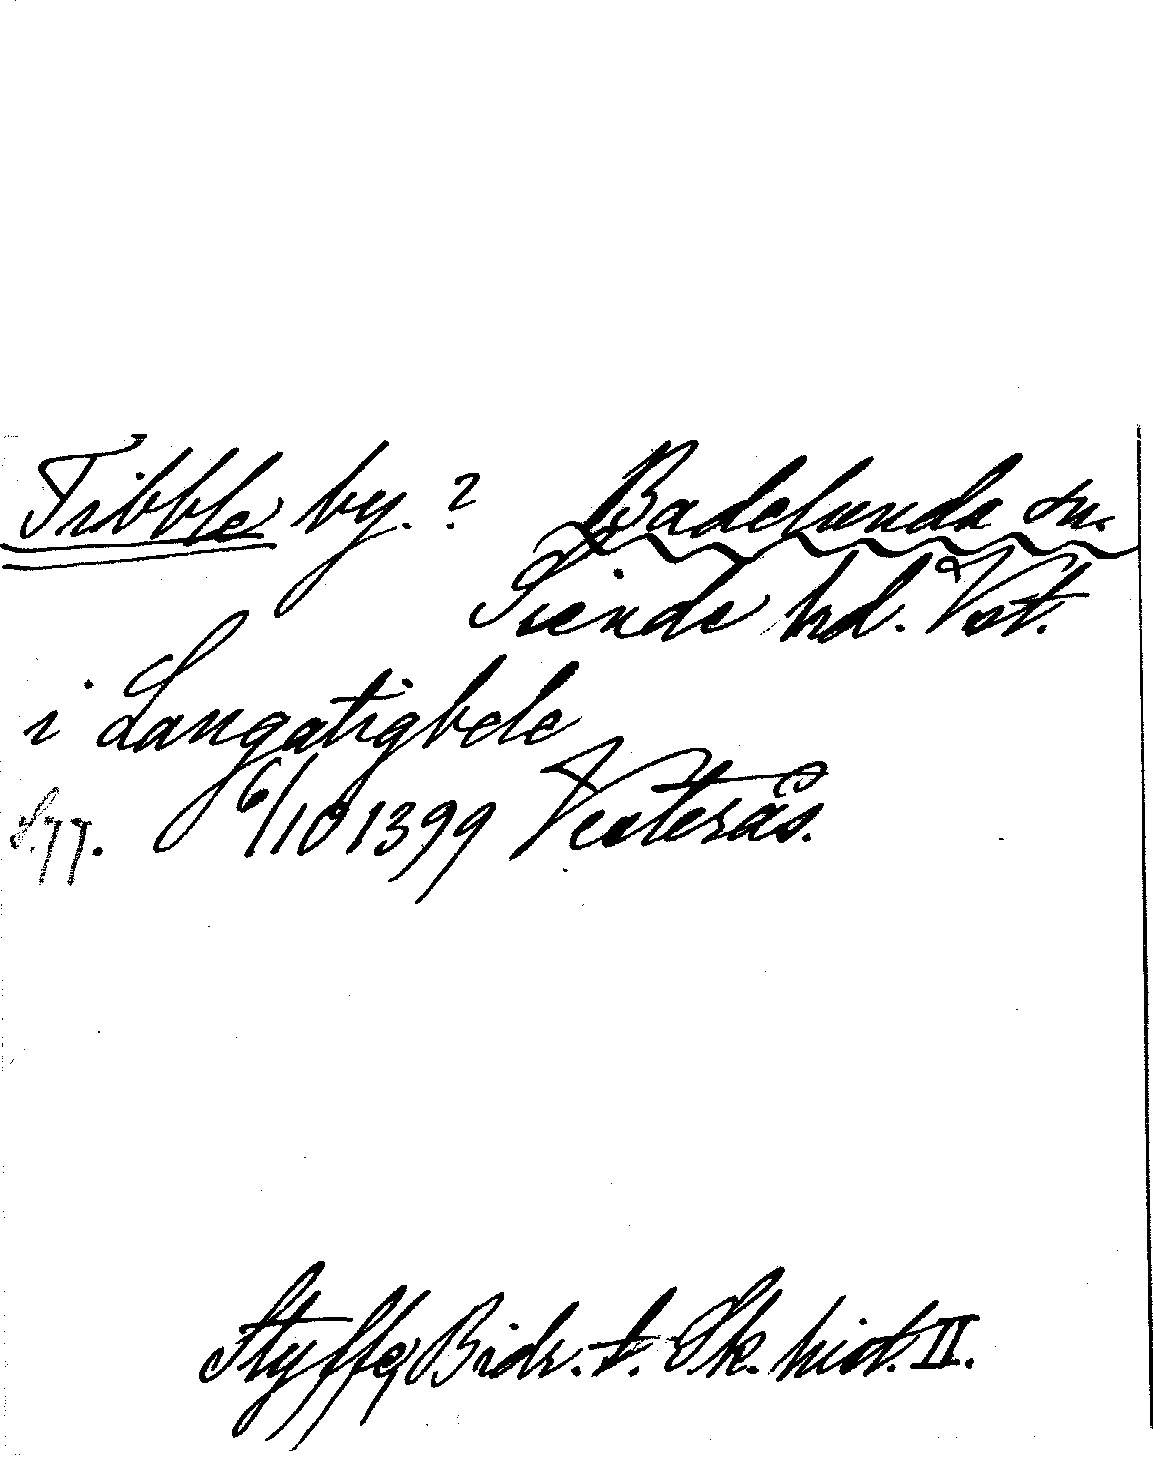 Tibble by. ? Badelunda sn.
Siende hd. Vst.
i Langatigbele
S.77. 6/10 1399 Vesterås.
Styffe, Bidr. t. Sk. hist. II.